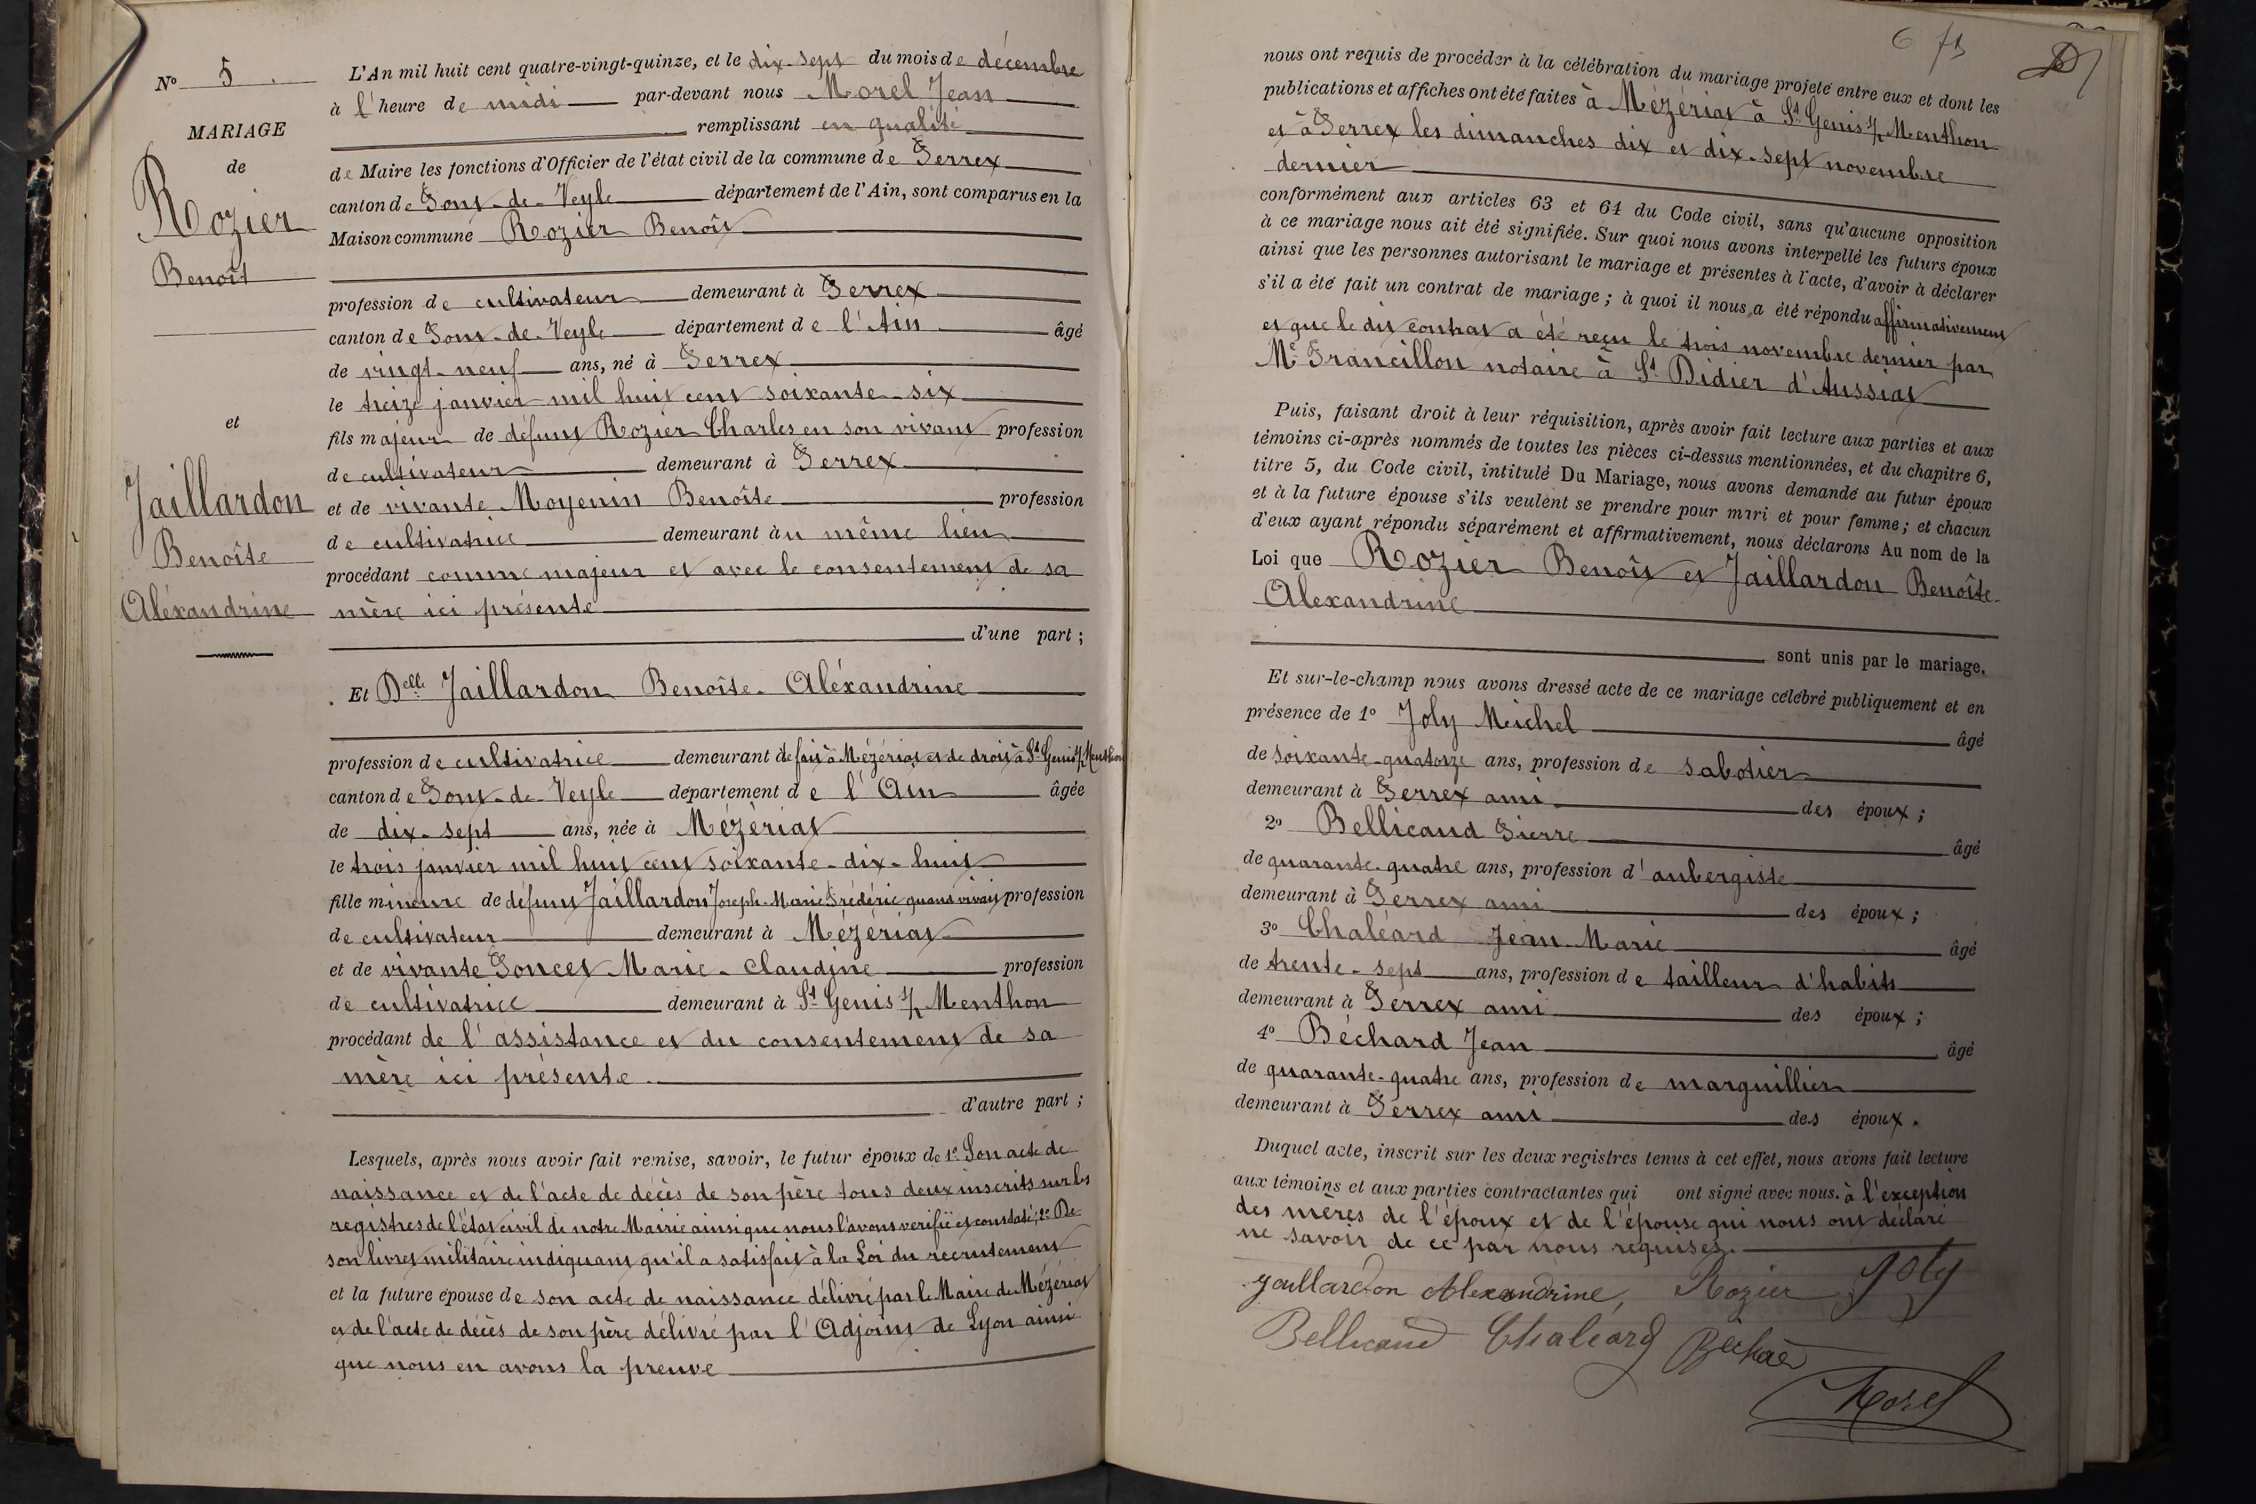 N° 5
MARIAGE
de
Rozier
Benoît
et
Jaillardon
Benoîte
Aléxandrine
L'An mil huit cent quatre-vingt-quinze, et le dix-sept du mois de décembre
à l'heure de midi par-devant nous Morel Jean
remplissant en qualité
de Maire les fonctions d'Officier de l'état civil de la commune de Perrex
canton de Pont-de-Veyle département de l'Ain, sont comparus en la
Maison commune Rozier Benoît
profession de cultivateur demeurant à Perrex
canton de Pont-de-Veyle département de l'Ain âgé
de vingt-neuf ans, né à Perrex
le treize janvier mil huit cent soixante-six
fils majeur de défunt Rozier Charles en son vivant profession
de cultivateur demeurant à Perrex
et de vivante Moyenin Benoîte profession
de cultivatrice demeurant au même lieu
procédant comme majeur et avec le consentement de sa
mère ici présente
d'une part ;
Et Delle Jaillardon Benoîte-Aléxandrine
profession de cultivatrice demeurant de fait à Mézériat et de droit à St Genis s/ Menthon
canton de Pont-de-Veyle département de l'Ain âgée
de dix-sept ans, née à Mézèriat
le trois janvier mil huit cent soixante-dix-huit
fille mineure de défunt Jaillardon Joseph-Marie Frédéric quand vivait profession
de cultivateur demeurant à Mézériat
et de vivante Poncet Marie-Claudine profession
de cultivatrice demeurant à St Genis s/ Menthon
procédant de l'assistance et du consentement de sa
mère ici présente.
d'autre part ;
Lesquels, après nous avoir fait remise, savoir, le futur époux de 1° Son acte de
naissance et de l'acte de décès de son père tous deux inscrits sur les
registres de l'état civil de notre Mairie ainsi que nous l'avons verifié et constaté; 2° De
son livret militaire indiquant qu'il a satisfait à la Loi du recrutement
et la future épouse de son acte de naissance délivré par le Maire de Mézériat
et de l'acte de décès de son père délivré par l'Adjoint de Lyon ainsi
que nous en avons la preuve
nous ont requis de procéder à la célébration du mariage projeté entre eux et dont les
publications et affiches ont été faites à Mézériat à St Genis s/ Menthon
et à Perrex les dimanches dix et dix-sept novembre
dernier
conformément aux articles 63 et 64 du Code civil, sans qu'aucune opposition
à ce mariage nous ait été signifiée. Sur quoi nous avons interpellé les futurs époux
ainsi que les personnes autorisant le mariage et présentes à l'acte, d'avoir à déclarer
s'il a été fait un contrat de mariage ; à quoi il nous a été répondu affirmativement
et que le dit contrat a été reçu le trois novembre dernier par
Me Francillon notaire à St Didier d'Aussiat
Puis, faisant droit à leur réquisition, après avoir fait lecture aux parties et aux
témoins ci-après nommés de toutes les pièces ci-dessus mentionnées, et du chapitre 6,
titre 5, du Code civil, intitulé Du Mariage, nous avons demandé au futur époux
et à la future épouse s'ils veulent se prendre pour mari et pour femme ; et chacun
d'eux ayant répondu séparément et affirmativement, nous déclarons Au nom de la
Loi que Rozier Benoît et Jaillardon Benoîte
Alexandrine
sont unis par le mariage.
Et sur-le-champ nous avons dressé acte de ce mariage célébré publiquement et en
présence de 1° Joly Michel âgé
de soixante-quatorze ans, profession de sabotier
demeurant à Perrex ami des époux ;
2° Bellicaud Pierre âgé
de quarante-quatre ans, profession d'aubergiste
demeurant à Perrex ami des époux ;
3° Chaléard Jean-Marie âgé
de trente-sept ans, profession de tailleur d'habits
demeurant à Perrex ami des époux ;
4° Béchard Jean âgé
de quarante-quatre ans, profession de marguillier
demeurant à Perrex ami des époux.
Duquel acte, inscrit sur les deux registres tenus à cet effet, nous avons fait lecture
aux témoins et aux parties contractantes qui ont signé avec nous. à l'exception
des mères de l'époux et de l'épouse qui nous ont déclaré
ne savoir de ce par nous requises.
Jaillardon Alexandrine, Rozier Joly
Bellicaud Chaleard Bechard
Morel